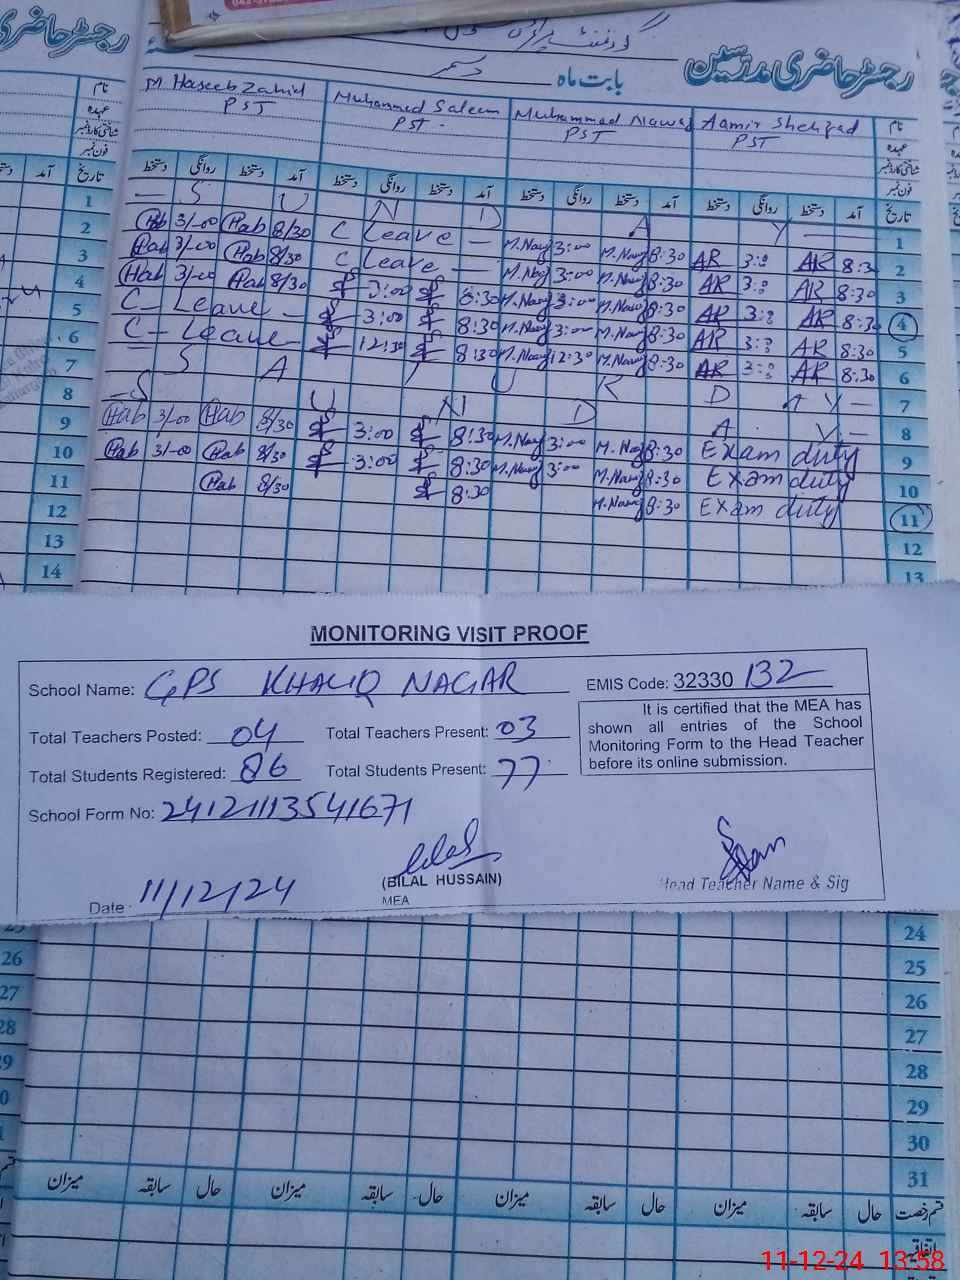 رجسٹر حاضری مدرسین
بابت ماہ دسمبر
نام M Haseeb Zahid Muhammed Saleem Muhammad Nawaz Aamir Shehzad
عہدہ PST PST PST PST
شناختی کارڈ نمبر
فون نمبر
تاریخ آمد دستخط روانگی دستخط آمد دستخط روانگی دستخط آمد دستخط روانگی دستخط آمد دستخط روانگی دستخط تاریخ
1 — S U N D A Y — 1
2 Hab 3/-00 Hab 8/30 C Leave — M.Nawaz 3:00 M.Nawaz 8:30 AR 3:00 AR 8:30 2
3 Hab 3/-00 Hab 8/30 C Leave — M.Nawaz 3:00 M.Nawaz 8:30 AR 3:00 AR 8:30 3
4 Hab 3/-00 Hab 8/30 3:00 8:30 M.Nawaz 3:00 M.Nawaz 8:30 AR 3:00 AR 8:30 4
5 C - Leave - 3:00 8:30 M.Nawaz 3:00 M.Nawaz 8:30 AR 3:00 AR 8:30 5
6 C - Leave 12:30 8:30 M.Nawaz 12:30 M.Nawaz 8:30 AR 3:00 AR 8:30 6
7 S A T U R D A Y — 7
8 — S U N D A Y — 8
9 Hab 3/-00 Hab 8/30 3:00 8:30 M.Nawaz 3:00 M.Nawaz 8:30 Exam duty 9
10 Hab 3/-00 Hab 8/30 3:00 8:30 M.Nawaz 3:00 M.Nawaz 8:30 Exam duty 10
11 Hab 8/30 8:30 M.Nawaz 8:30 Exam duty 11
12 12
13 13
14
MONITORING VISIT PROOF
School Name: GPS KHALIQ NAGAR EMIS Code: 32330 132
Total Teachers Posted: 04 Total Teachers Present: 03
Total Students Registered: 86 Total Students Present: 77
School Form No: 24121113541671
It is certified that the MEA has
shown all entries of the School
Monitoring Form to the Head Teacher
before its online submission.
Date 11/12/24
(BILAL HUSSAIN)
MEA
Head Teacher Name & Sig
24
25 25
26 26
27 27
28 28
29 29
30
31
قسم رخصت حال سابقہ میزان حال سابقہ میزان حال سابقہ میزان حال سابقہ میزان
اتفاقیہ
11-12-24 13:58